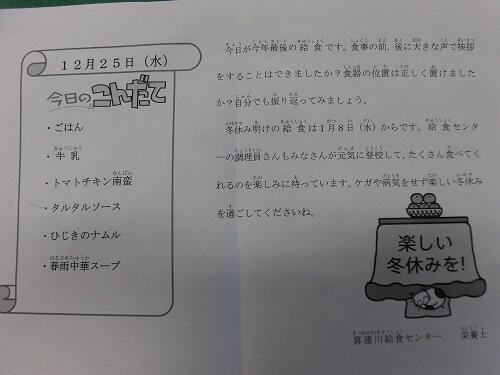 12月25日（水）
今日のこんだて
・ごはん
・牛乳
・トマトチキン南蛮
・タルタルソース
・ひじきのナムル
・春雨中華スープ
今日が今年最後の給食です。食事の前、後に大きな声で挨拶
をすることはできましたか？食器の位置は正しく置けました
か？自分でも振り返ってみましょう。
冬休み明けの給食は1月8日（水）からです。給食センタ
ーの調理員さんもみなさんが元気に登校して、たくさん食べてく
れるのを楽しみに待っています。ケガや病気をせず楽しい冬休み
を過ごしてくださいね。
楽しい
冬休みを!
喜連川給食センター　栄養士